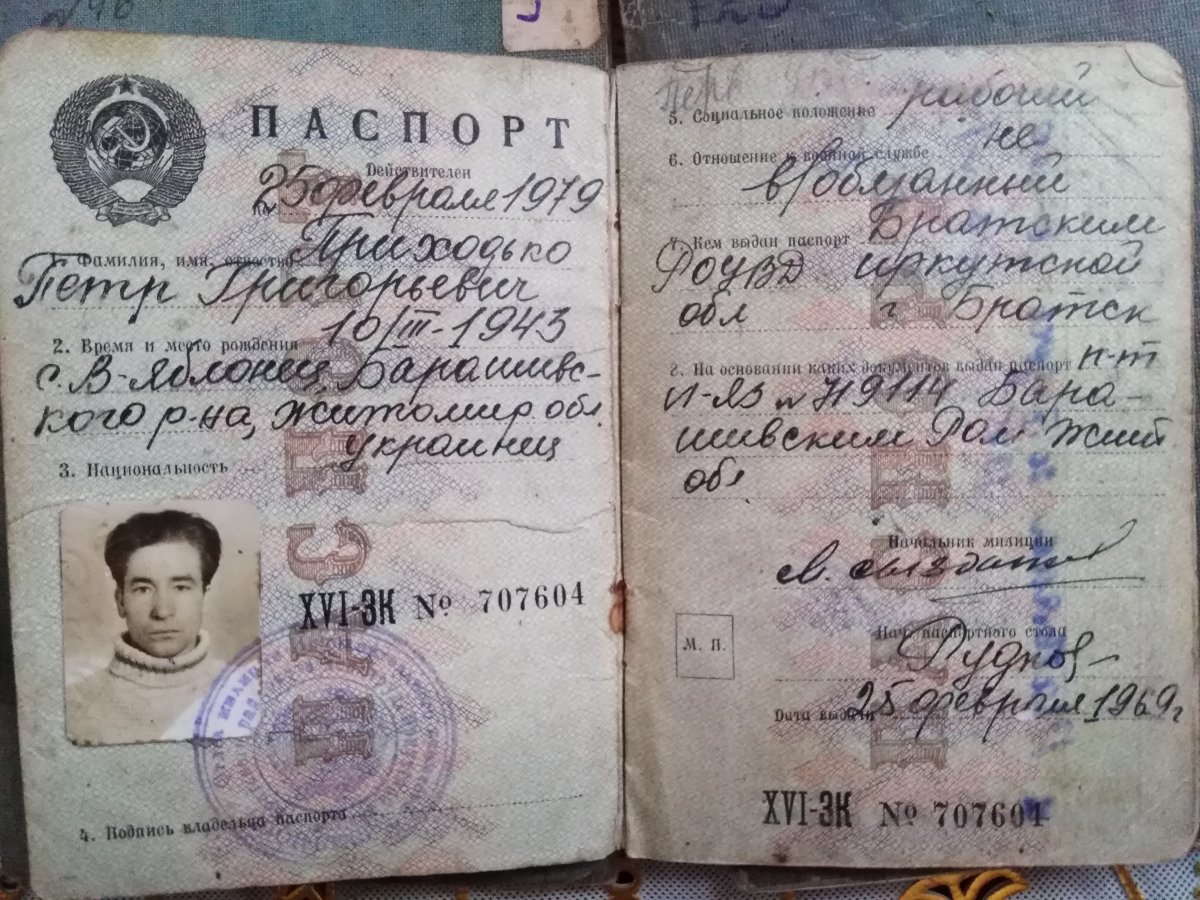 ПАСПОРТ
Действителен
по 25 февраля 1979
1. Фамилия, имя, отчество Приходько
Петр Григорьевич
2. Время и место рождения 10/III-1943
с. В-Яблонец, Барашивс-
кого р-на, Житомир. обл
3. Национальность украинец
XVI-ЗК № 707604
4. Подпись владельца паспорта
5. Социальное положение рабочий
6. Отношение к военной службе не
в/обязанный
7. Кем выдан паспорт Братским
РОУВД иркутской
обл г Братск
8. На основании каких документов выдан паспорт п-т
II-ЯЗ № 719114 Бара-
шивским Ром Жит
обл
Начальник милиции
М. П.
Нач. паспортного стола
Дата выдачи 25 февраля 1969 г
XVI-ЗК № 707604
ПАСПОРТ
ПАСПОРТ